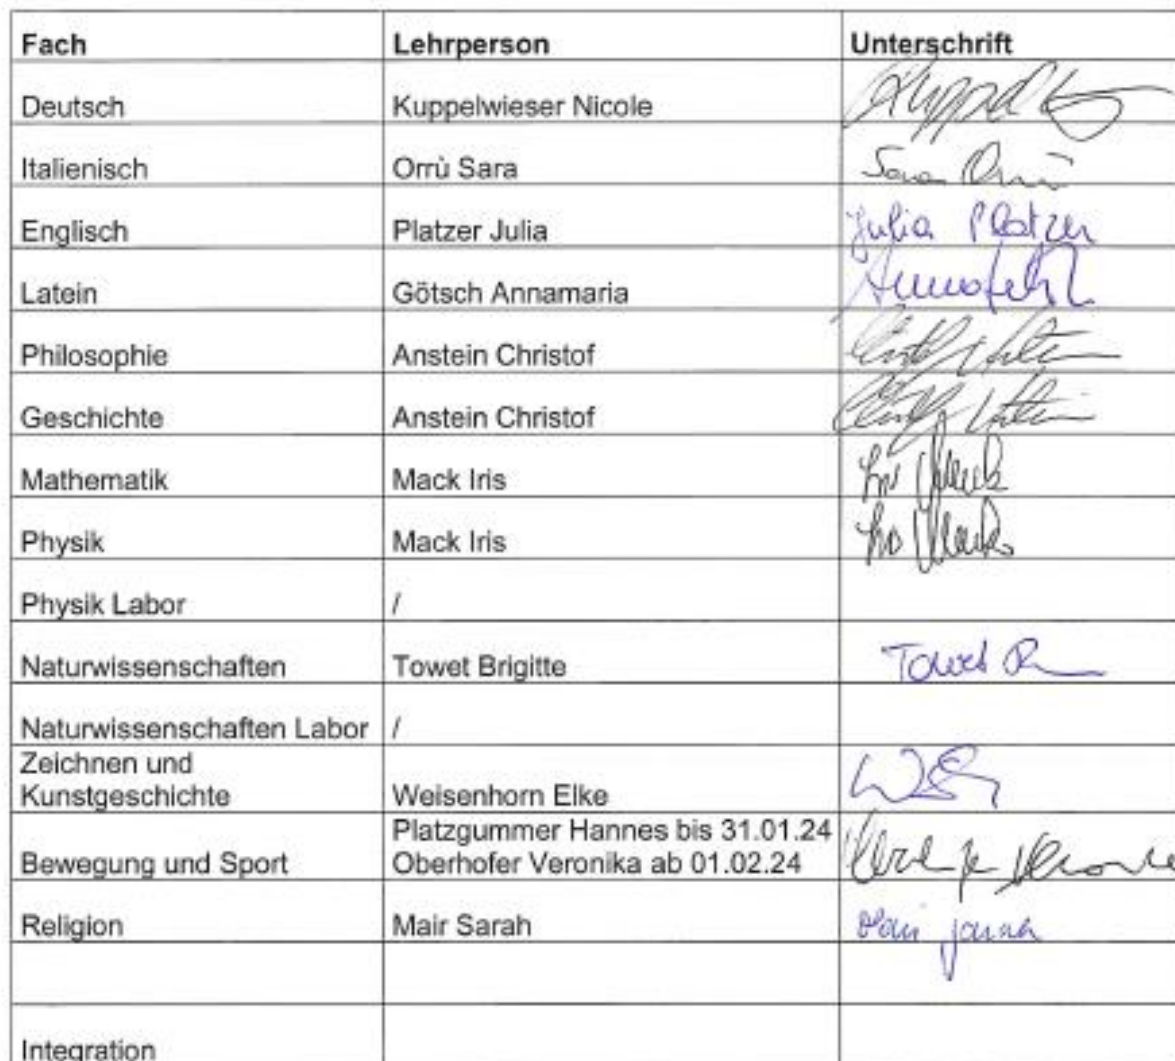 Fach Lehrperson Unterschrift
Deutsch Kuppelwieser Nicole
Italienisch Orrù Sara Sara Orrù
Englisch Platzer Julia Julia Platzer
Latein Götsch Annamaria
Philosophie Anstein Christof
Geschichte Anstein Christof
Mathematik Mack Iris
Physik Mack Iris
Physik Labor /
Naturwissenschaften Towet Brigitte Towet
Naturwissenschaften Labor /
Zeichnen und
Kunstgeschichte Weisenhorn Elke
Platzgummer Hannes bis 31.01.24
Bewegung und Sport Oberhofer Veronika ab 01.02.24
Religion Mair Sarah
Integration